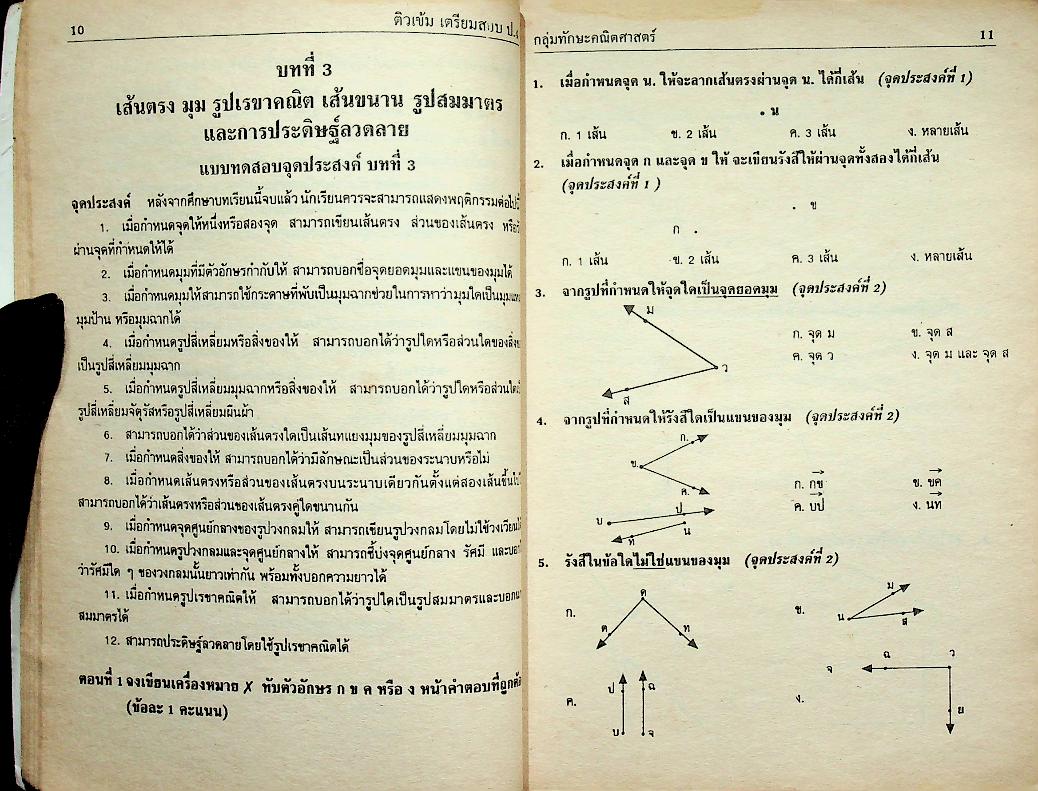 10
ติวเข้ม เตรียมสอบ ป.4
บทที่ 3
เส้นตรง มุม รูปเรขาคณิต เส้นขนาน รูปสมมาตร
และการประดิษฐ์ลวดลาย
แบบทดสอบจุดประสงค์ บทที่ 3
จุดประสงค์ หลังจากศึกษาบทเรียนนี้จบแล้ว นักเรียนควรจะสามารถแสดงพฤติกรรมต่อไปนี้
1. เมื่อกำหนดจุดให้หนึ่งหรือสองจุด สามารถเขียนเส้นตรง ส่วนของเส้นตรง
ผ่านจุดที่กำหนดให้ได้
2. เมื่อกำหนดมุมที่มีตัวอักษรกำกับให้ สามารถบอกชื่อจุดยอดมุมและแขนของมุมได้
3. เมื่อกำหนดมุมให้สามารถใช้กระดาษที่พับเป็นมุมฉากช่วยในการหาว่ามุมใดเป็น
มุมป้าน หรือมุมฉากได้
4. เมื่อกำหนดรูปสี่เหลี่ยมหรือสิ่งของให้ สามารถบอกได้ว่ารูปใดหรือส่วนใดของ
เป็นรูปสี่เหลี่ยมมุมฉาก
5. เมื่อกำหนดรูปสี่เหลี่ยมมุมฉากหรือสิ่งของให้ สามารถบอกได้ว่ารูปใดหรือส่วนใด
รูปสี่เหลี่ยมจัตุรัสหรือรูปสี่เหลี่ยมผืนผ้า
6. สามารถบอกได้ว่าส่วนของเส้นตรงใดเป็นเส้นทแยงมุมของรูปสี่เหลี่ยมมุมฉาก
7. เมื่อกำหนดสิ่งของให้ สามารถบอกได้ว่ามีลักษณะเป็นส่วนของระนาบหรือไม่
8. เมื่อกำหนดเส้นตรงหรือส่วนของเส้นตรงบนระนาบเดียวกันตั้งแต่สองเส้นขึ้นไป
สามารถบอกได้ว่าเส้นตรงหรือส่วนของเส้นตรงคู่ใดขนานกัน
9. เมื่อกำหนดจุดศูนย์กลางของรูปวงกลมให้ สามารถเขียนรูปวงกลมโดยไม่ใช้วงเวียนได้
10. เมื่อกำหนดรูปวงกลมและจุดศูนย์กลางให้ สามารถชี้บ่งจุดศูนย์กลาง รัศมี
ว่ารัศมีใด ๆ ของวงกลมนั้นยาวเท่ากัน พร้อมทั้งบอกความยาวได้
11. เมื่อกำหนดรูปเรขาคณิตให้ สามารถบอกได้ว่ารูปใดเป็นรูปสมมาตรและบอก
สมมาตรได้
12. สามารถประดิษฐ์ลวดลายโดยใช้รูปเรขาคณิตได้
ตอนที่ 1 จงเขียนเครื่องหมาย ✗ ทับตัวอักษร ก ข ค หรือ ง หน้าคำตอบที่ถูกต้อง
(ข้อละ 1 คะแนน)
กลุ่มทักษะคณิตศาสตร์
11
1. เมื่อกำหนดจุด น. ให้จะลากเส้นตรงผ่านจุด น. ได้กี่เส้น (จุดประสงค์ที่ 1)
. น
ก. 1 เส้น ข. 2 เส้น ค. 3 เส้น ง. หลายเส้น
2. เมื่อกำหนดจุด ก และจุด ข ให้ จะเขียนรังสีให้ผ่านจุดทั้งสองได้กี่เส้น
(จุดประสงค์ที่ 1 )
. ข
ก .
ก. 1 เส้น ข. 2 เส้น ค. 3 เส้น ง. หลายเส้น
3. จากรูปที่กำหนดให้จุดใดเป็นจุดยอดมุม (จุดประสงค์ที่ 2)
ม
ก. จุด ม ข. จุด ส
ค. จุด ว ง. จุด ม และ จุด ส
ว
ส
4. จากรูปที่กำหนดให้รังสีใดเป็นแขนของมุม (จุดประสงค์ที่ 2)
ก.
ข.
ค.
ก. กข ข. ขค
ค. บป ง. นท
บ ป
น
ท
5. รังสีในข้อใดไม่ใช่แขนของมุม (จุดประสงค์ที่ 2)
ก. ด ค ท
ข. น ม ส
ค. ป ฉ บ จ
ง. จ ฉ ว ย